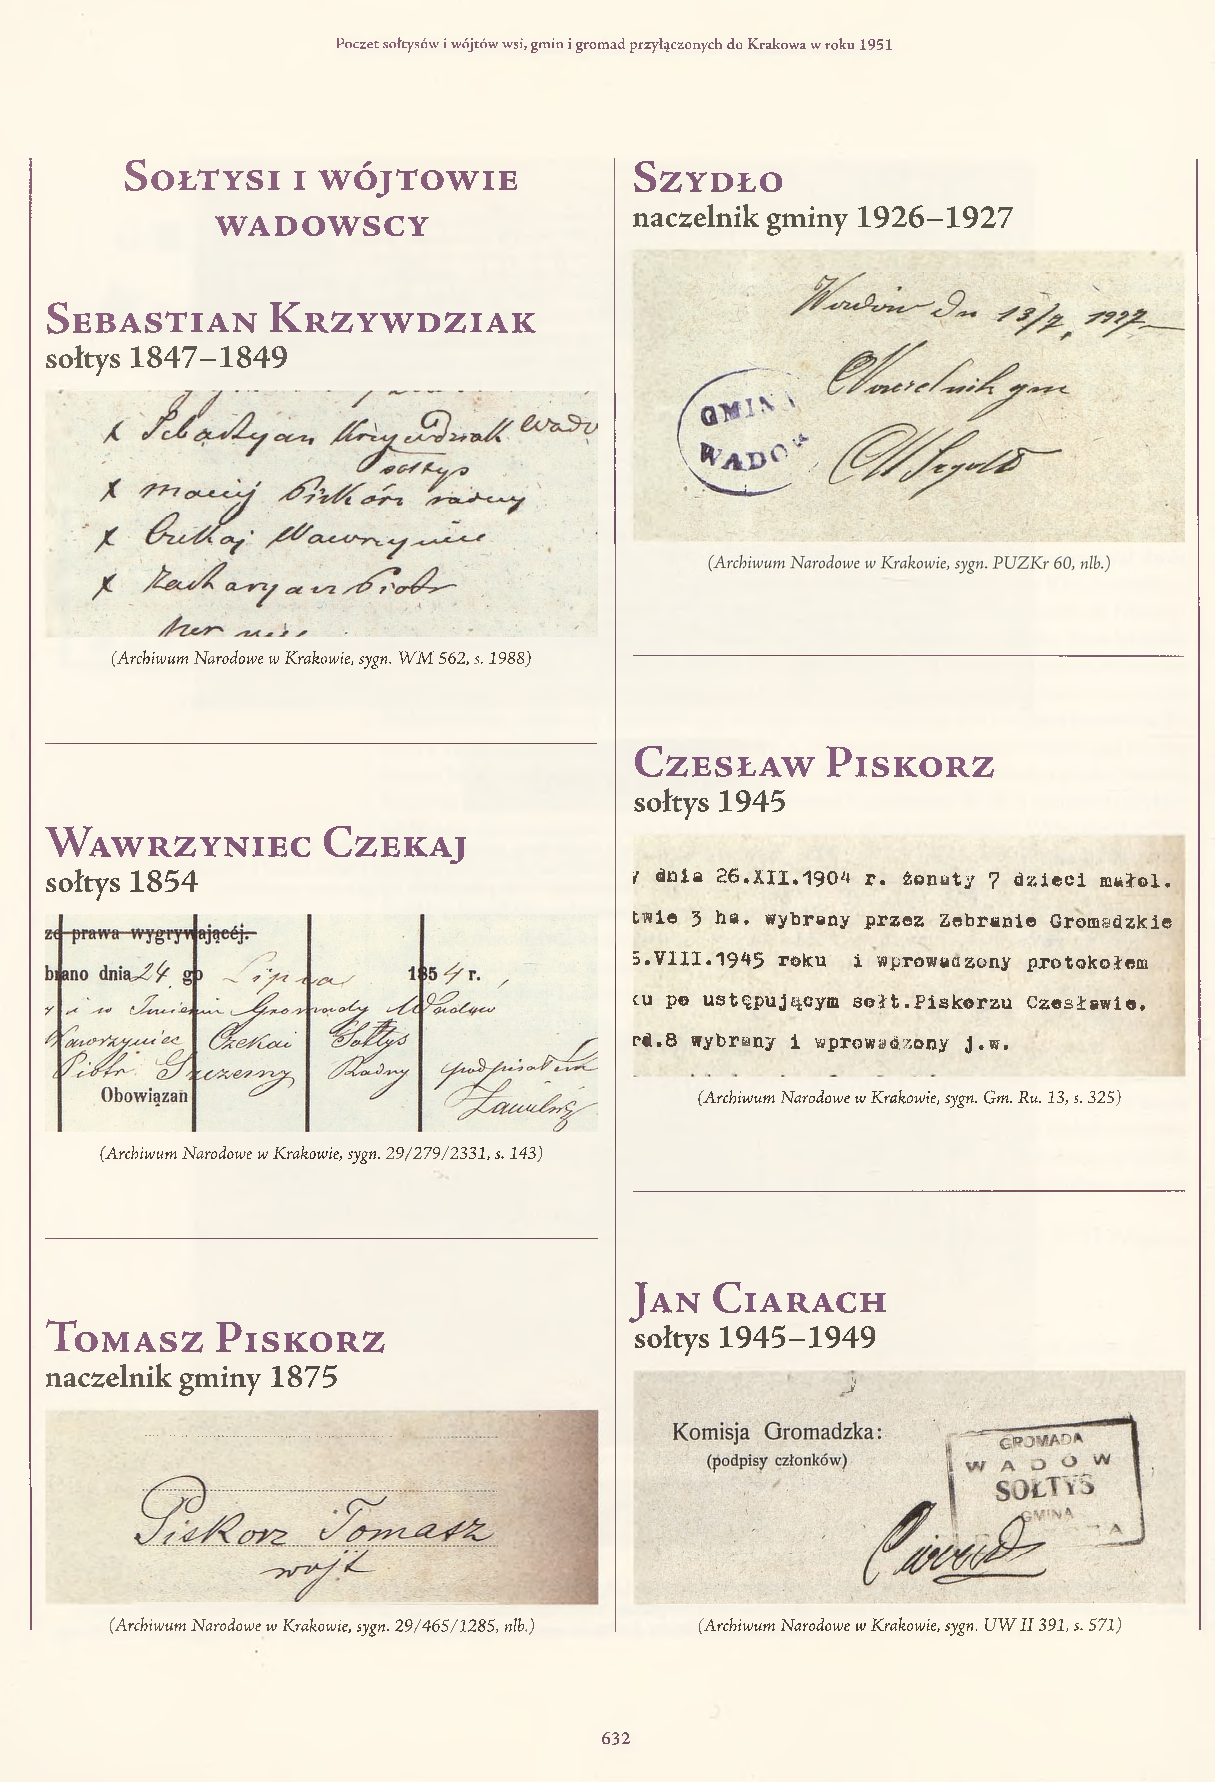 Poczet sołtysów i wójtów wsi, gmin i gromad przyłączonych do Krakowa w roku 1951
Sołtysi i wójtowie
wadowscy
Sebastian Krzywdziak
sołtys 1847–1849
x Sebastyan Krzywdziak Wado
sołtys
x Maciej Piskórz radny
x Czekaj Wawrzyniec
x Zacharyasz Piotr
(Archiwum Narodowe w Krakowie, sygn. WM 562, s. 1988)
Wawrzyniec Czekaj
sołtys 1854
ze prawa wygrywającéj.
brano dnia 24 go Lipca 1854 r.,
i w Imieniu Gromady Wadow
Wawrzyniec Czekai Sołtys
Piotr Szczerny Radny podpisałem
Obowiązan
(Archiwum Narodowe w Krakowie, sygn. 29/279/2331, s. 143)
Tomasz Piskorz
naczelnik gminy 1875
Piskorz Tomasz
wojt
(Archiwum Narodowe w Krakowie, sygn. 29/465/1285, nlb.)
Szydło
naczelnik gminy 1926–1927
Wadów dn 13/7, 1927
Naczelnik gm
GMINA
WADÓW
Szydło
(Archiwum Narodowe w Krakowie, sygn. PUZKr 60, nlb.)
Czesław Piskorz
sołtys 1945
dnia 26.XII.1904 r. żonaty 7 dzieci małol.
twie 3 ha. wybrany przez Zebranie Gromadzkie
5.VIII.1945 roku i wprowadzony protokołem
ku po ustępującym sołt.Piskorzu Czesławie.
rd.8 wybrany i wprowadzony j.w.
(Archiwum Narodowe w Krakowie, sygn. Gm. Ru. 13, s. 325)
Jan Ciarach
sołtys 1945–1949
Komisja Gromadzka:
(podpisy członków)
GROMADA
WADÓW
SOŁTYS
GMINA
Ciarach
(Archiwum Narodowe w Krakowie, sygn. UW II 391, s. 571)
632